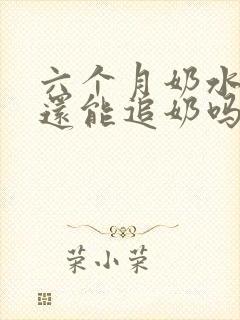 六个月奶水
還能追奶吗
荣小荣